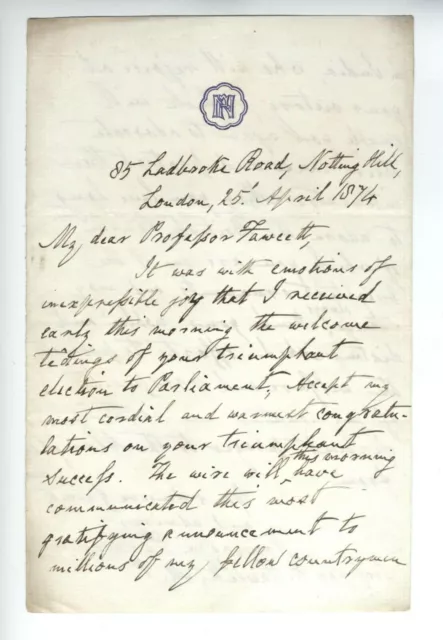 85 Ladbroke Road, Notting Hill,
London, 25 April 1874
My dear Professor Fawcett,
It was with emotions of
inexpressible joy that I received
early this morning the welcome
tidings of your triumphant
election to Parliament, Accept my
most cordial and warmest congratu-
lations on your triumphant
success. The wire will this morning have
communicated this most
gratifying announcement to
millions of my fellow countrymen